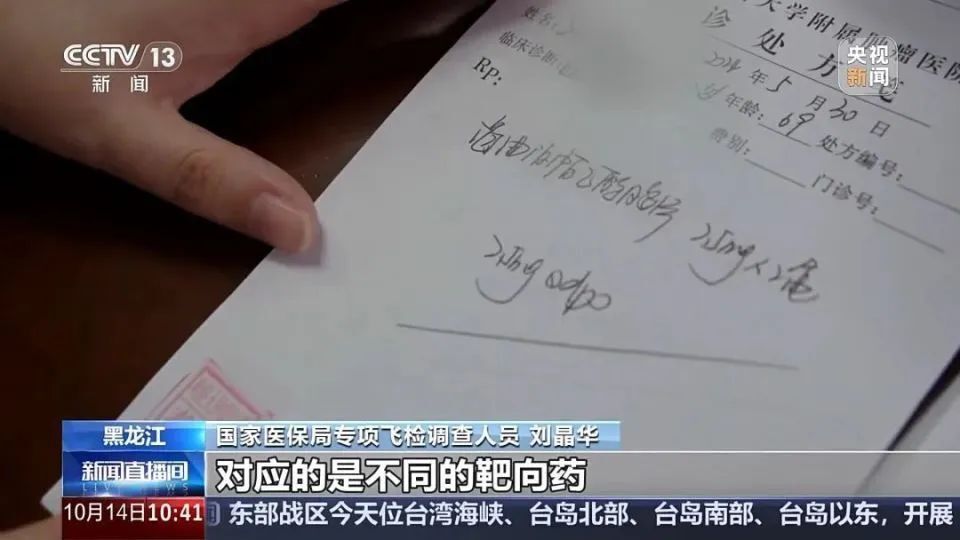 CCTV 13
新闻
央视
新闻
大学附属肿瘤医院
诊处方
姓名:
2024年5月30日
临床诊断
年龄: 69 处方编号:
Rp:
费别: 门诊号:
25mg
25mg qd po
黑龙江
国家医保局专项飞检调查人员 刘晶华
新闻直播间
LIVE NEWS
对应的是不同的靶向药
10月14日10:41
东部战区今天位台湾海峡、台岛北部、台岛南部、台岛以东，开展